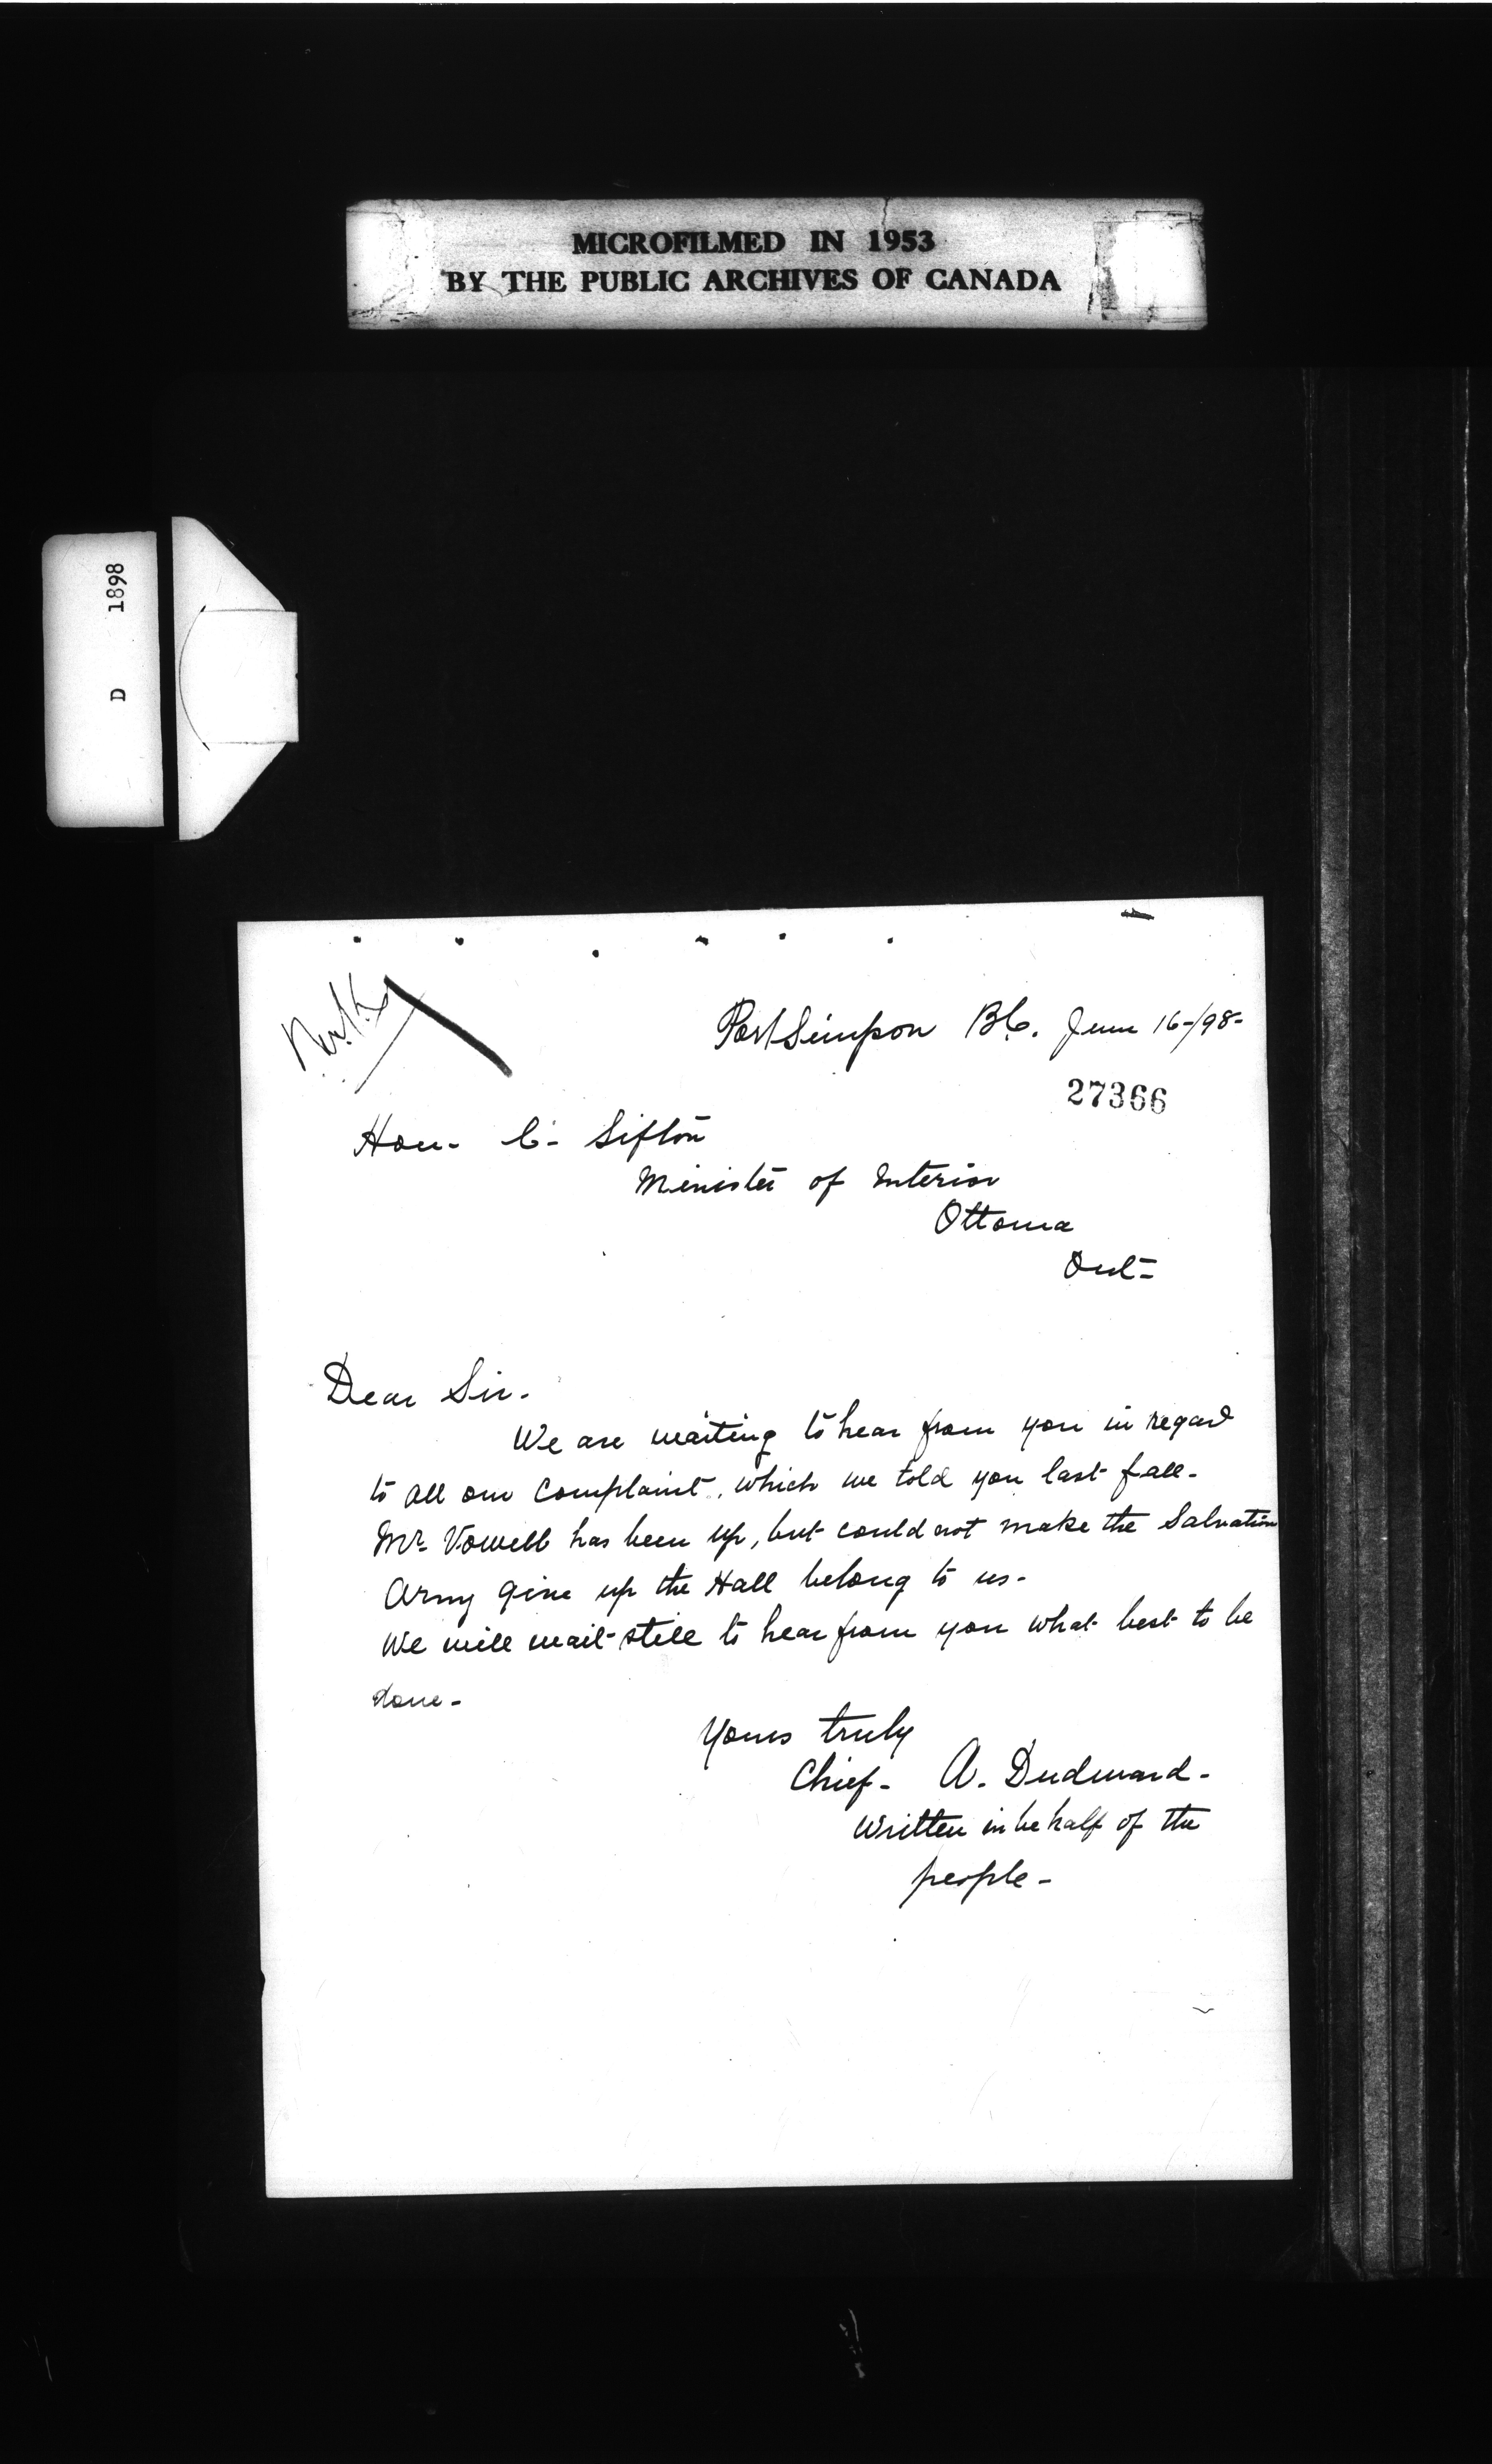 MICROFILMED IN 1953
BY THE PUBLIC ARCHIVES OF CANADA
D 1898
Port Simpson BC. June 16-/98-
27366
Hon- C- Sifton
Minister of Interior
Ottowa
Ont=
Dear Sir-
We are waiting to hear from you in regard
to all our Complaint, which we told you last fall-
Mr Vowell has been up, but could not make the Salvation
Army give up the Hall belong to us-
We will wait still to hear from you what best to be
done-
Yours truly
Chief- A. Dudward-
Written in behalf of the
people-